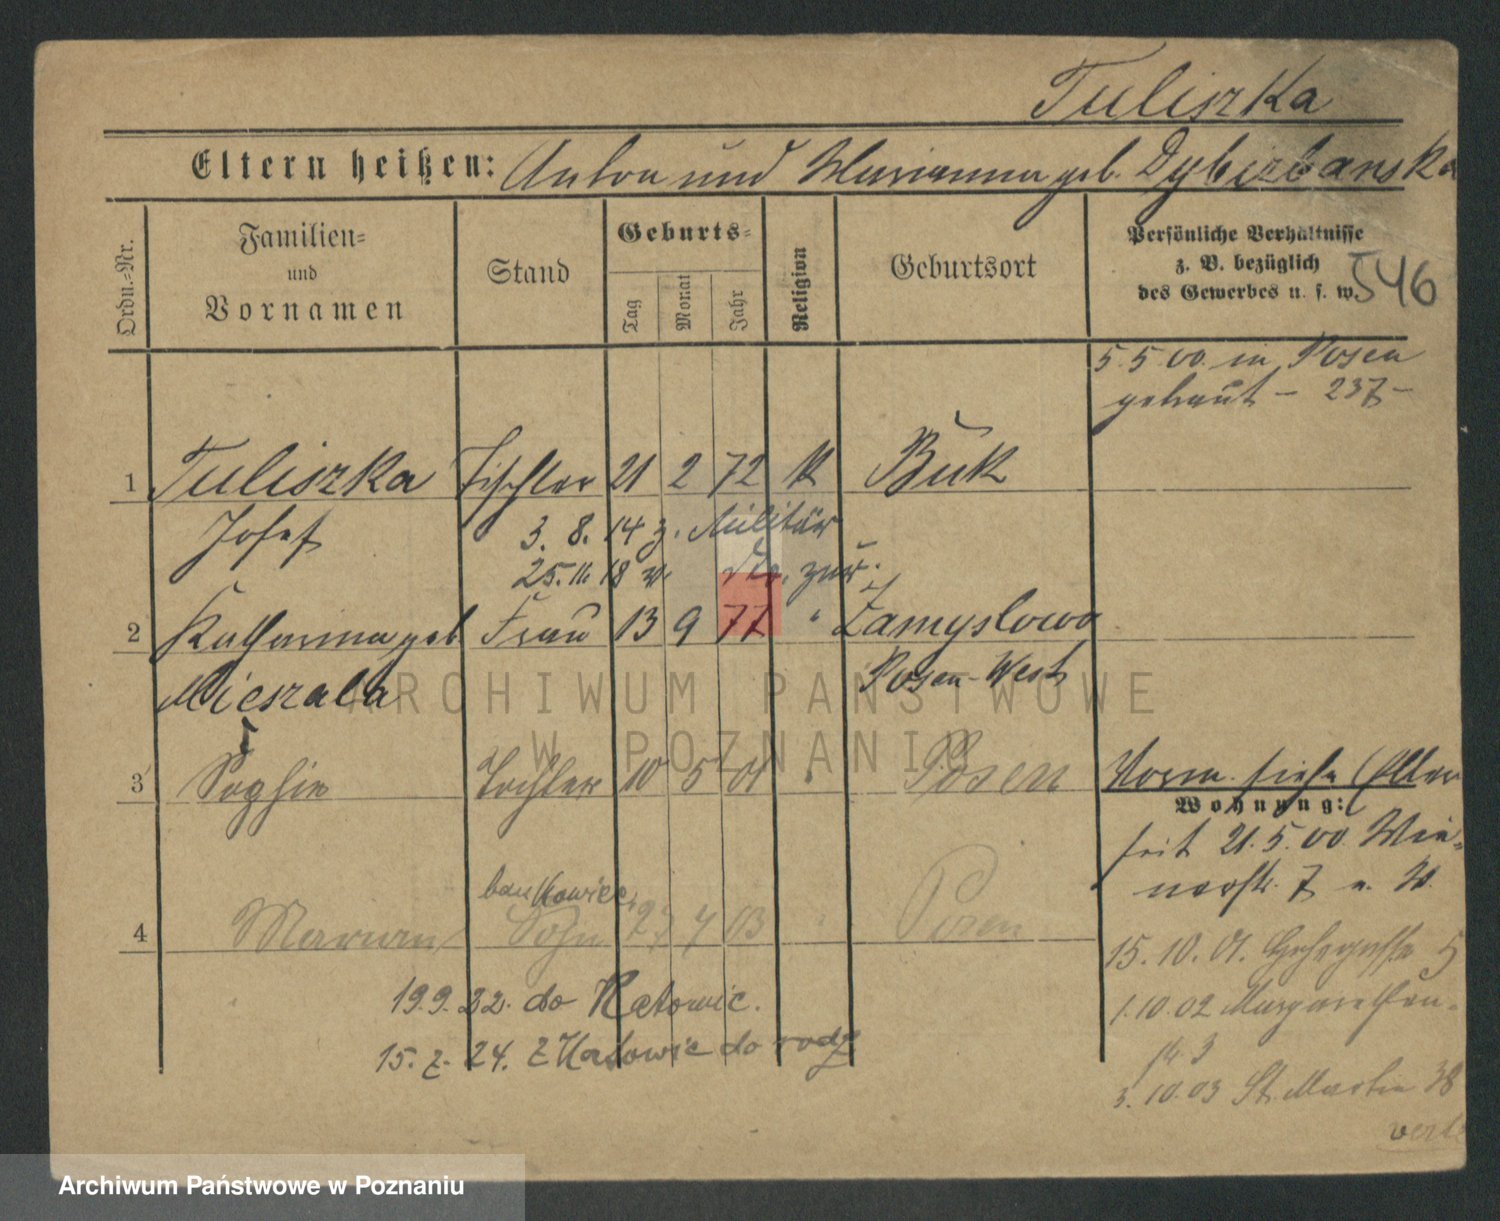 Tuliszka
Eltern heißen: Anton und Marianna geb. Dybizbanska
Ordn.=Nr.
Familien=
und
Vornamen
Stand
Geburts=
Tag
Monat
Jahr
Religion
Geburtsort
Persönliche Verhältnisse
z. B. bezüglich
des Gewerbes u. s. w.
546
5.5.00. in Posen
getraut – 237 –
1 Tuliszka Tischler 21 2 72 K Buk
Josef 3. 8. 14 z. Militär
25. 11. 18 v. zur.
2 Katharina geb Frau 13 9 77 " Zamyslowo
Mieszala Posen-West
3 Sophie Tochter 10 5 01 " Posen
Vorm. siehe Eltern
Wohnung:
seit 21.5.00 Wie=
nerstr. 7 n. W.
bankowiec
4 Marian Sohn 27 7 03 " Posen
15. 10. 01. 5
1.10.02 Margarethen-
14 3
3. 10. 03 St. Martin 38
19.9.22. do Katowic.
15. z. 24. z Katowic do rodz
ARCHIWUM PAŃSTWOWE
W POZNANIU
Archiwum Państwowe w Poznaniu